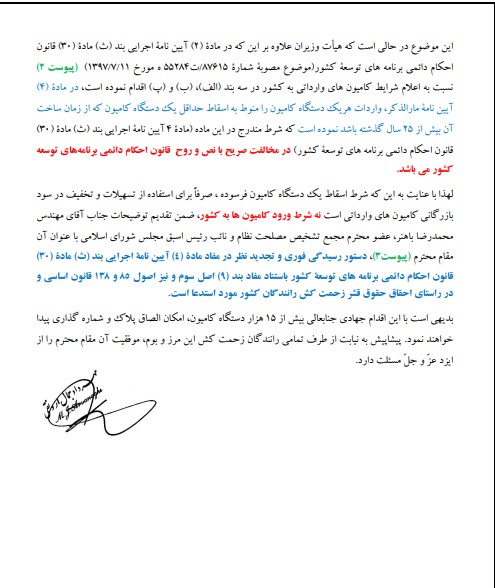 این موضوع در حالی است که هیأت وزیران علاوه بر این که در مادۀ (۲) آیین نامۀ اجرایی بند (ث) مادۀ (۳۰) قانون
احکام دائمی برنامه های توسعۀ کشور(موضوع مصوبۀ شمارۀ ۸۷۶۱۵/ت۵۵۲۸۴ ه مورخ ۱۳۹۷/۷/۱۱) (پیوست ۲)
نسبت به اعلام شرایط کامیون های وارداتی به کشور در سه بند (الف)، (ب) و (پ) اقدام نموده است، در مادۀ (۴)
آیین نامۀ مارالذکر، واردات هریک دستگاه کامیون را منوط به اسقاط حداقل یک دستگاه کامیون که از زمان ساخت
آن بیش از ۲۵ سال گذشته باشد نموده است که شرط مندرج در این ماده (مادۀ ۴ آیین نامۀ اجرایی بند (ث) مادۀ (۳۰)
قانون احکام دائمی برنامه های توسعۀ کشور) در مخالفت صریح با نص و روح قانون احکام دائمی برنامه‌های توسعه
کشور می باشد.
لهذا با عنایت به این که شرط اسقاط یک دستگاه کامیون فرسوده ، صرفاً برای استفاده از تسهیلات و تخفیف در سود
بازرگانی کامیون های وارداتی است نه شرط ورود کامیون ها به کشور، ضمن تقدیم توضیحات جناب آقای مهندس
محمدرضا باهنر، عضو محترم مجمع تشخیص مصلحت نظام و نائب رئیس اسبق مجلس شورای اسلامی با عنوان آن
مقام محترم (پیوست۳)، دستور رسیدگی فوری و تجدید نظر در مفاد مادۀ (٤) آیین نامۀ اجرایی بند (ث) مادۀ (۳۰)
قانون احکام دائمی برنامه های توسعۀ کشور باستناد مفاد بند (۹) اصل سوم و نیز اصول ۸۵ و ۱۳۸ قانون اساسی و
در راستای احقاق حقوق قشر زحمت کش رانندگان کشور مورد استدعا است.
بدیهی است با این اقدام جهادی جنابعالی بیش از ۱۵ هزار دستگاه کامیون، امکان الصاق پلاک و شماره گذاری پیدا
خواهند نمود. پیشاپیش به نیابت از طرف تمامی رانندگان زحمت کش این مرز و بوم، موفقیت آن مقام محترم را از
ایزد عزّ و جلّ مسئلت دارد.